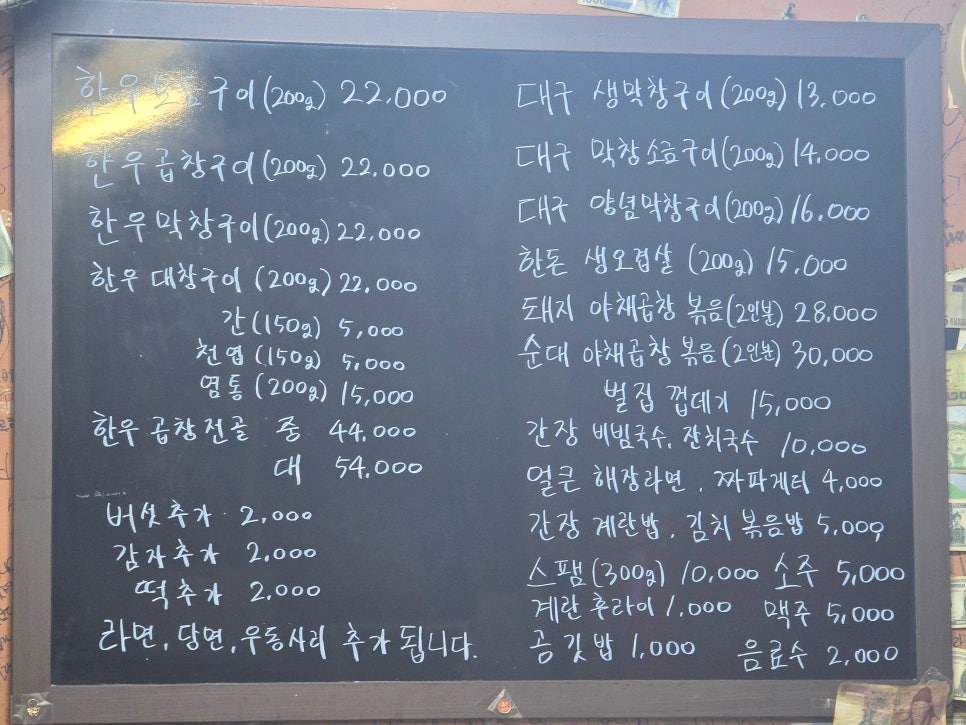 한우모듬구이(200g) 22.000
한우곱창구이(200g) 22.000
한우막창구이(200g) 22.000
한우 대창구이 (200g) 22.000
간(150g) 5,000
천엽(150g) 5,000
염통(200g) 15,000
한우 곱창전골 중 44.000
대 54.000
버섯추가 2,000
감자추가 2.000
떡추가 2.000
라면, 당면, 우동사리 추가 됩니다.
대구 생막창구이(200g) 13.000
대구 막창소금구이(200g) 14.000
대구 양념막창구이(200g) 16.000
한돈 생오겹살 (200g) 15.000
돼지 야채곱창 볶음(2인분) 28,000
순대 야채곱창 볶음(2인분) 30,000
벌집 껍데기 15,000
간장 비빔국수, 잔치국수 10,000
얼큰 해장라면, 짜파게티 4,000
간장 계란밥, 김치 볶음밥 5,000
스팸(300g) 10,000 소주 5,000
계란 후라이 1,000 맥주 5,000
공깃밥 1,000 음료수 2,000